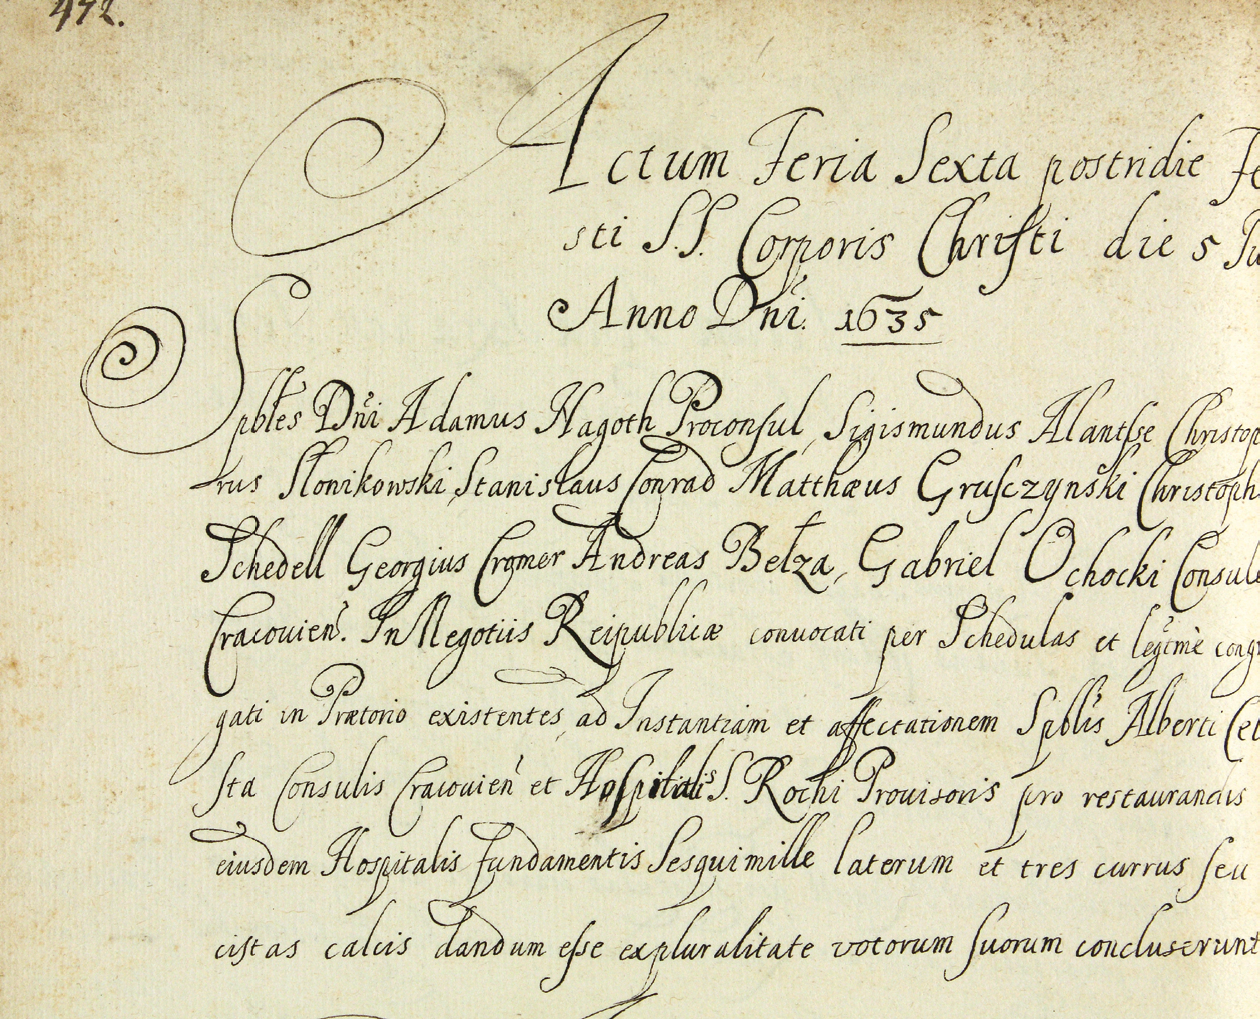 472.
Actum Feria Sexta postridie Fe
sti S.S. Corporis Christi die 5 Iu
Anno Dni. 1635
Spbles Dni Adamus Nagoth Proconsul, Sigismundus Alantse Christop
rus Slonikowski, Stanislaus Conrad Matthæus Grusczynski Christoph
Schedell Georgius Cromer Andreas Belza, Gabriel Ochocki Consule
Cracouien. In Negotiis Reipublicæ convocati per Schedulas et legtmè cong
gati in Prætorio existentes, ad Instantiam et affectationem Spblis Alberti Cel
sta Consulis Cracouien et Hospitalis S. Rochi Prouisoris pro restaurandis
eiusdem Hospitalis fundamentis Sesquimille laterum et tres currus seu
cistas calcis dandum esse expluralitate votorum suorum concluserunt